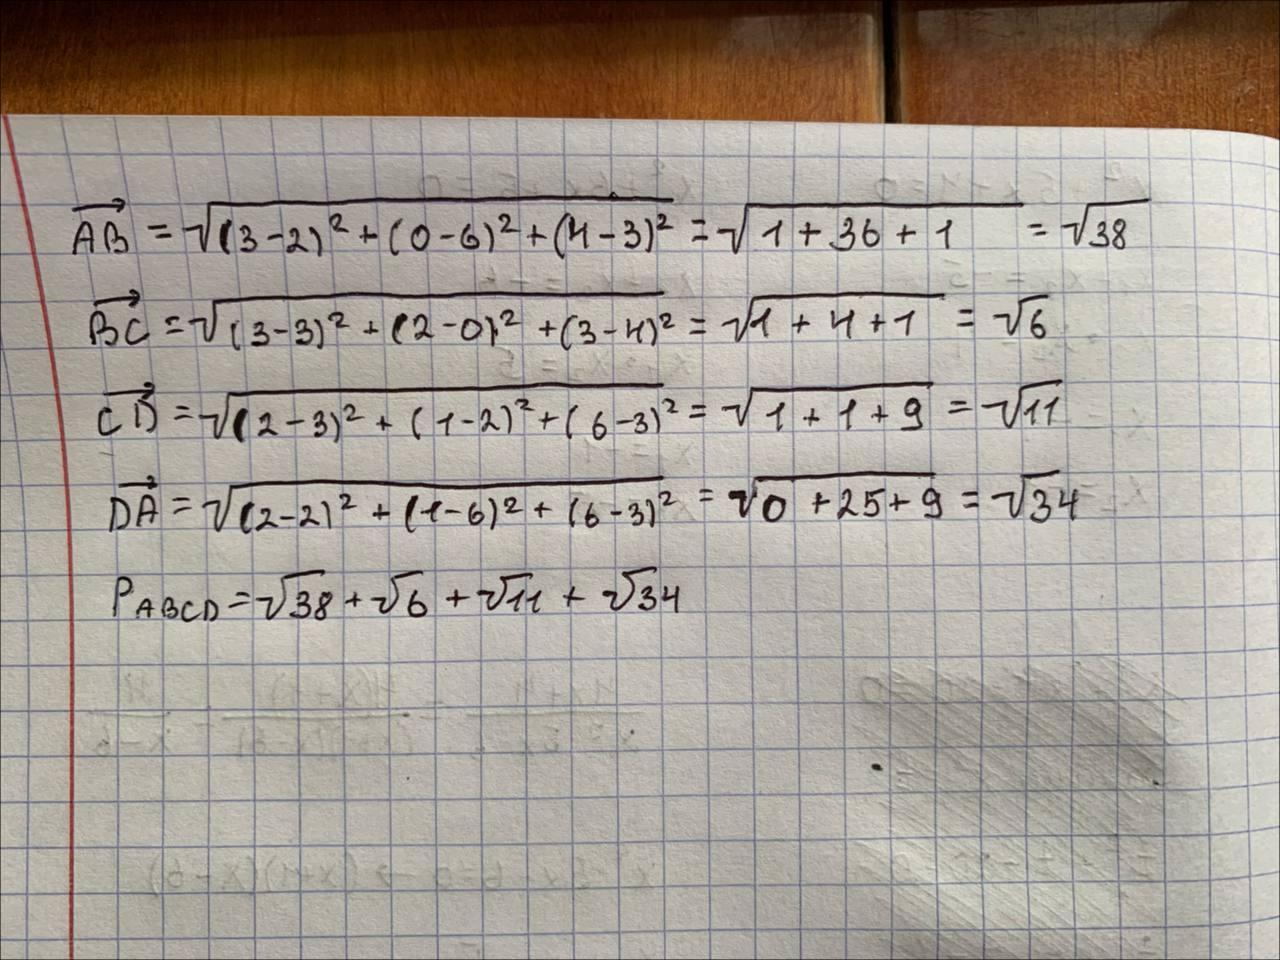 AB = √(3-2)² + (0-6)² + (4-3)² = √1 + 36 + 1 = √38
BC = √(3-3)² + (2-0)² + (3-4)² = √1 + 4 + 1 = √6
CD = √(2-3)² + (1-2)² + (6-3)² = √1 + 1 + 9 = √11
DA = √(2-2)² + (1-6)² + (6-3)² = √0 + 25 + 9 = √34
P ABCD = √38 + √6 + √11 + √34